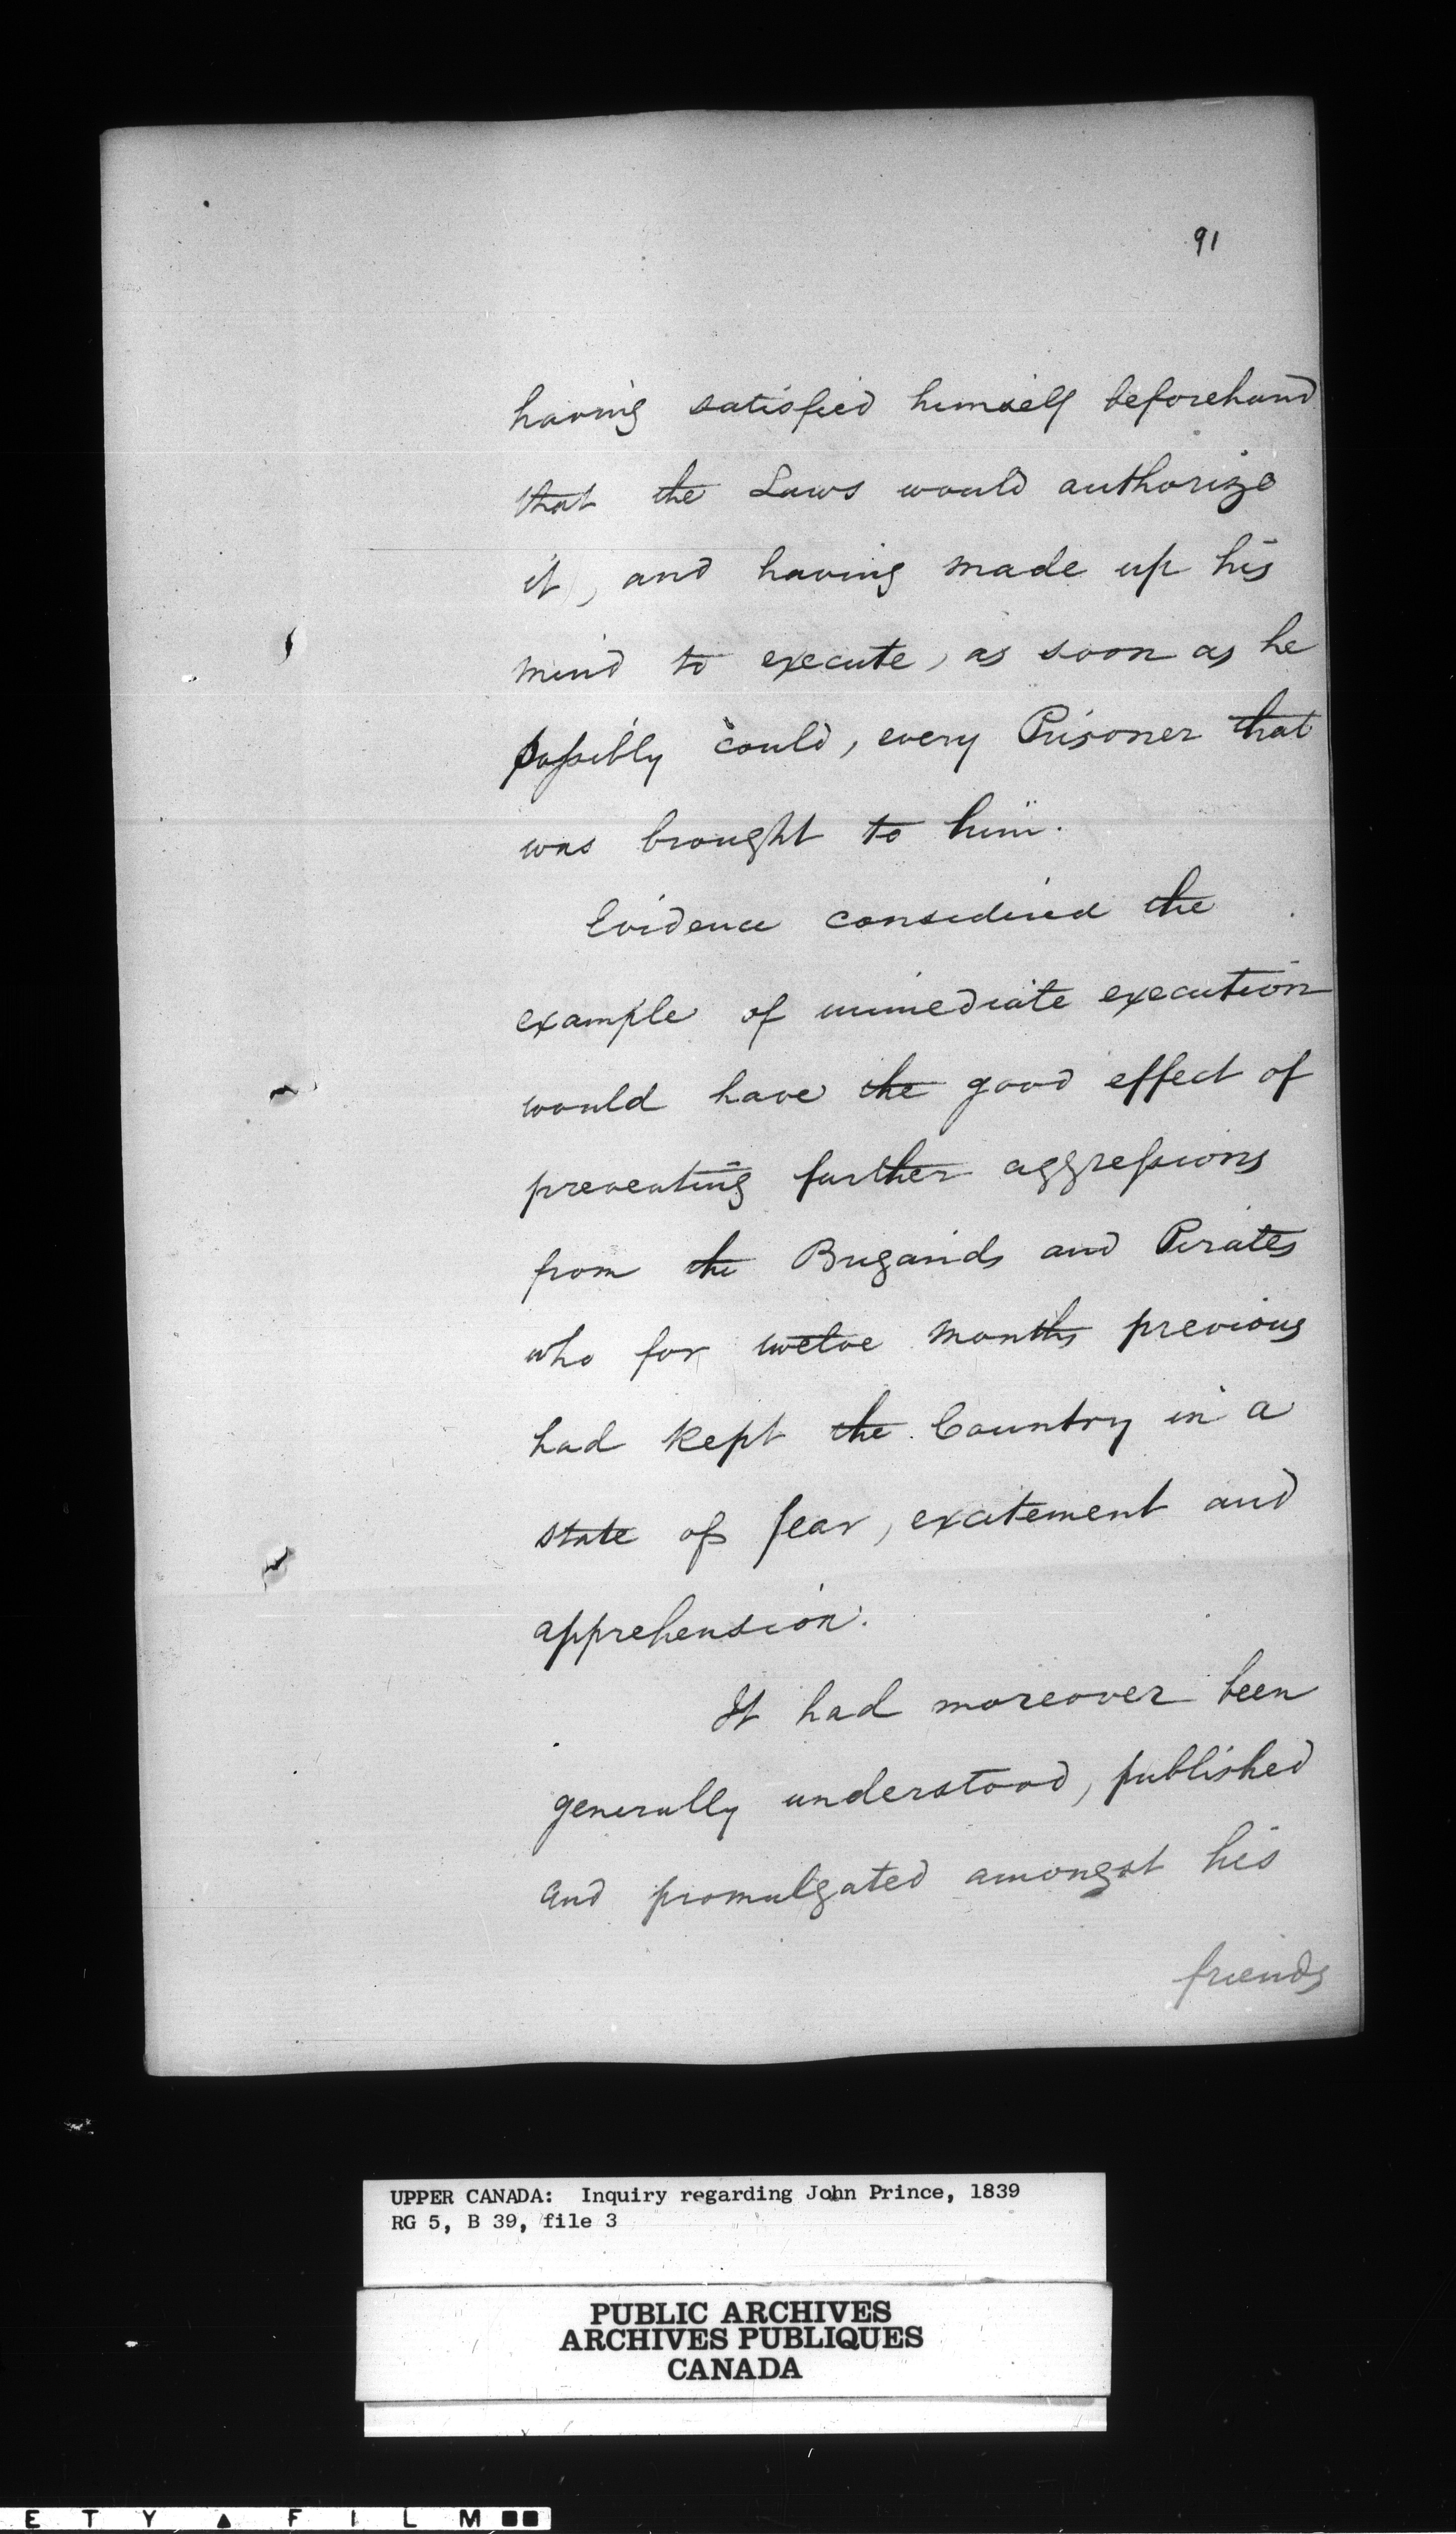 91
having satisfied himself beforehand
that the Laws would authorize
it, and having made up his
mind to execute, as soon as he
possibly could, every Prisoner that
was brought to him.
Evidence considered the
example of immediate execution
would have the good effect of
preventing further aggressions
from the Brigands and Pirates
who for twelve months previous
had kept the Country in a
state of fear, excitement and
apprehension.
It had moreover been
generally understood, published
and promulgated amongst his
friends
UPPER CANADA: Inquiry regarding John Prince, 1839
RG 5, B 39, file 3
PUBLIC ARCHIVES
ARCHIVES PUBLIQUES
CANADA
E T Y ▲ F I L M ■■